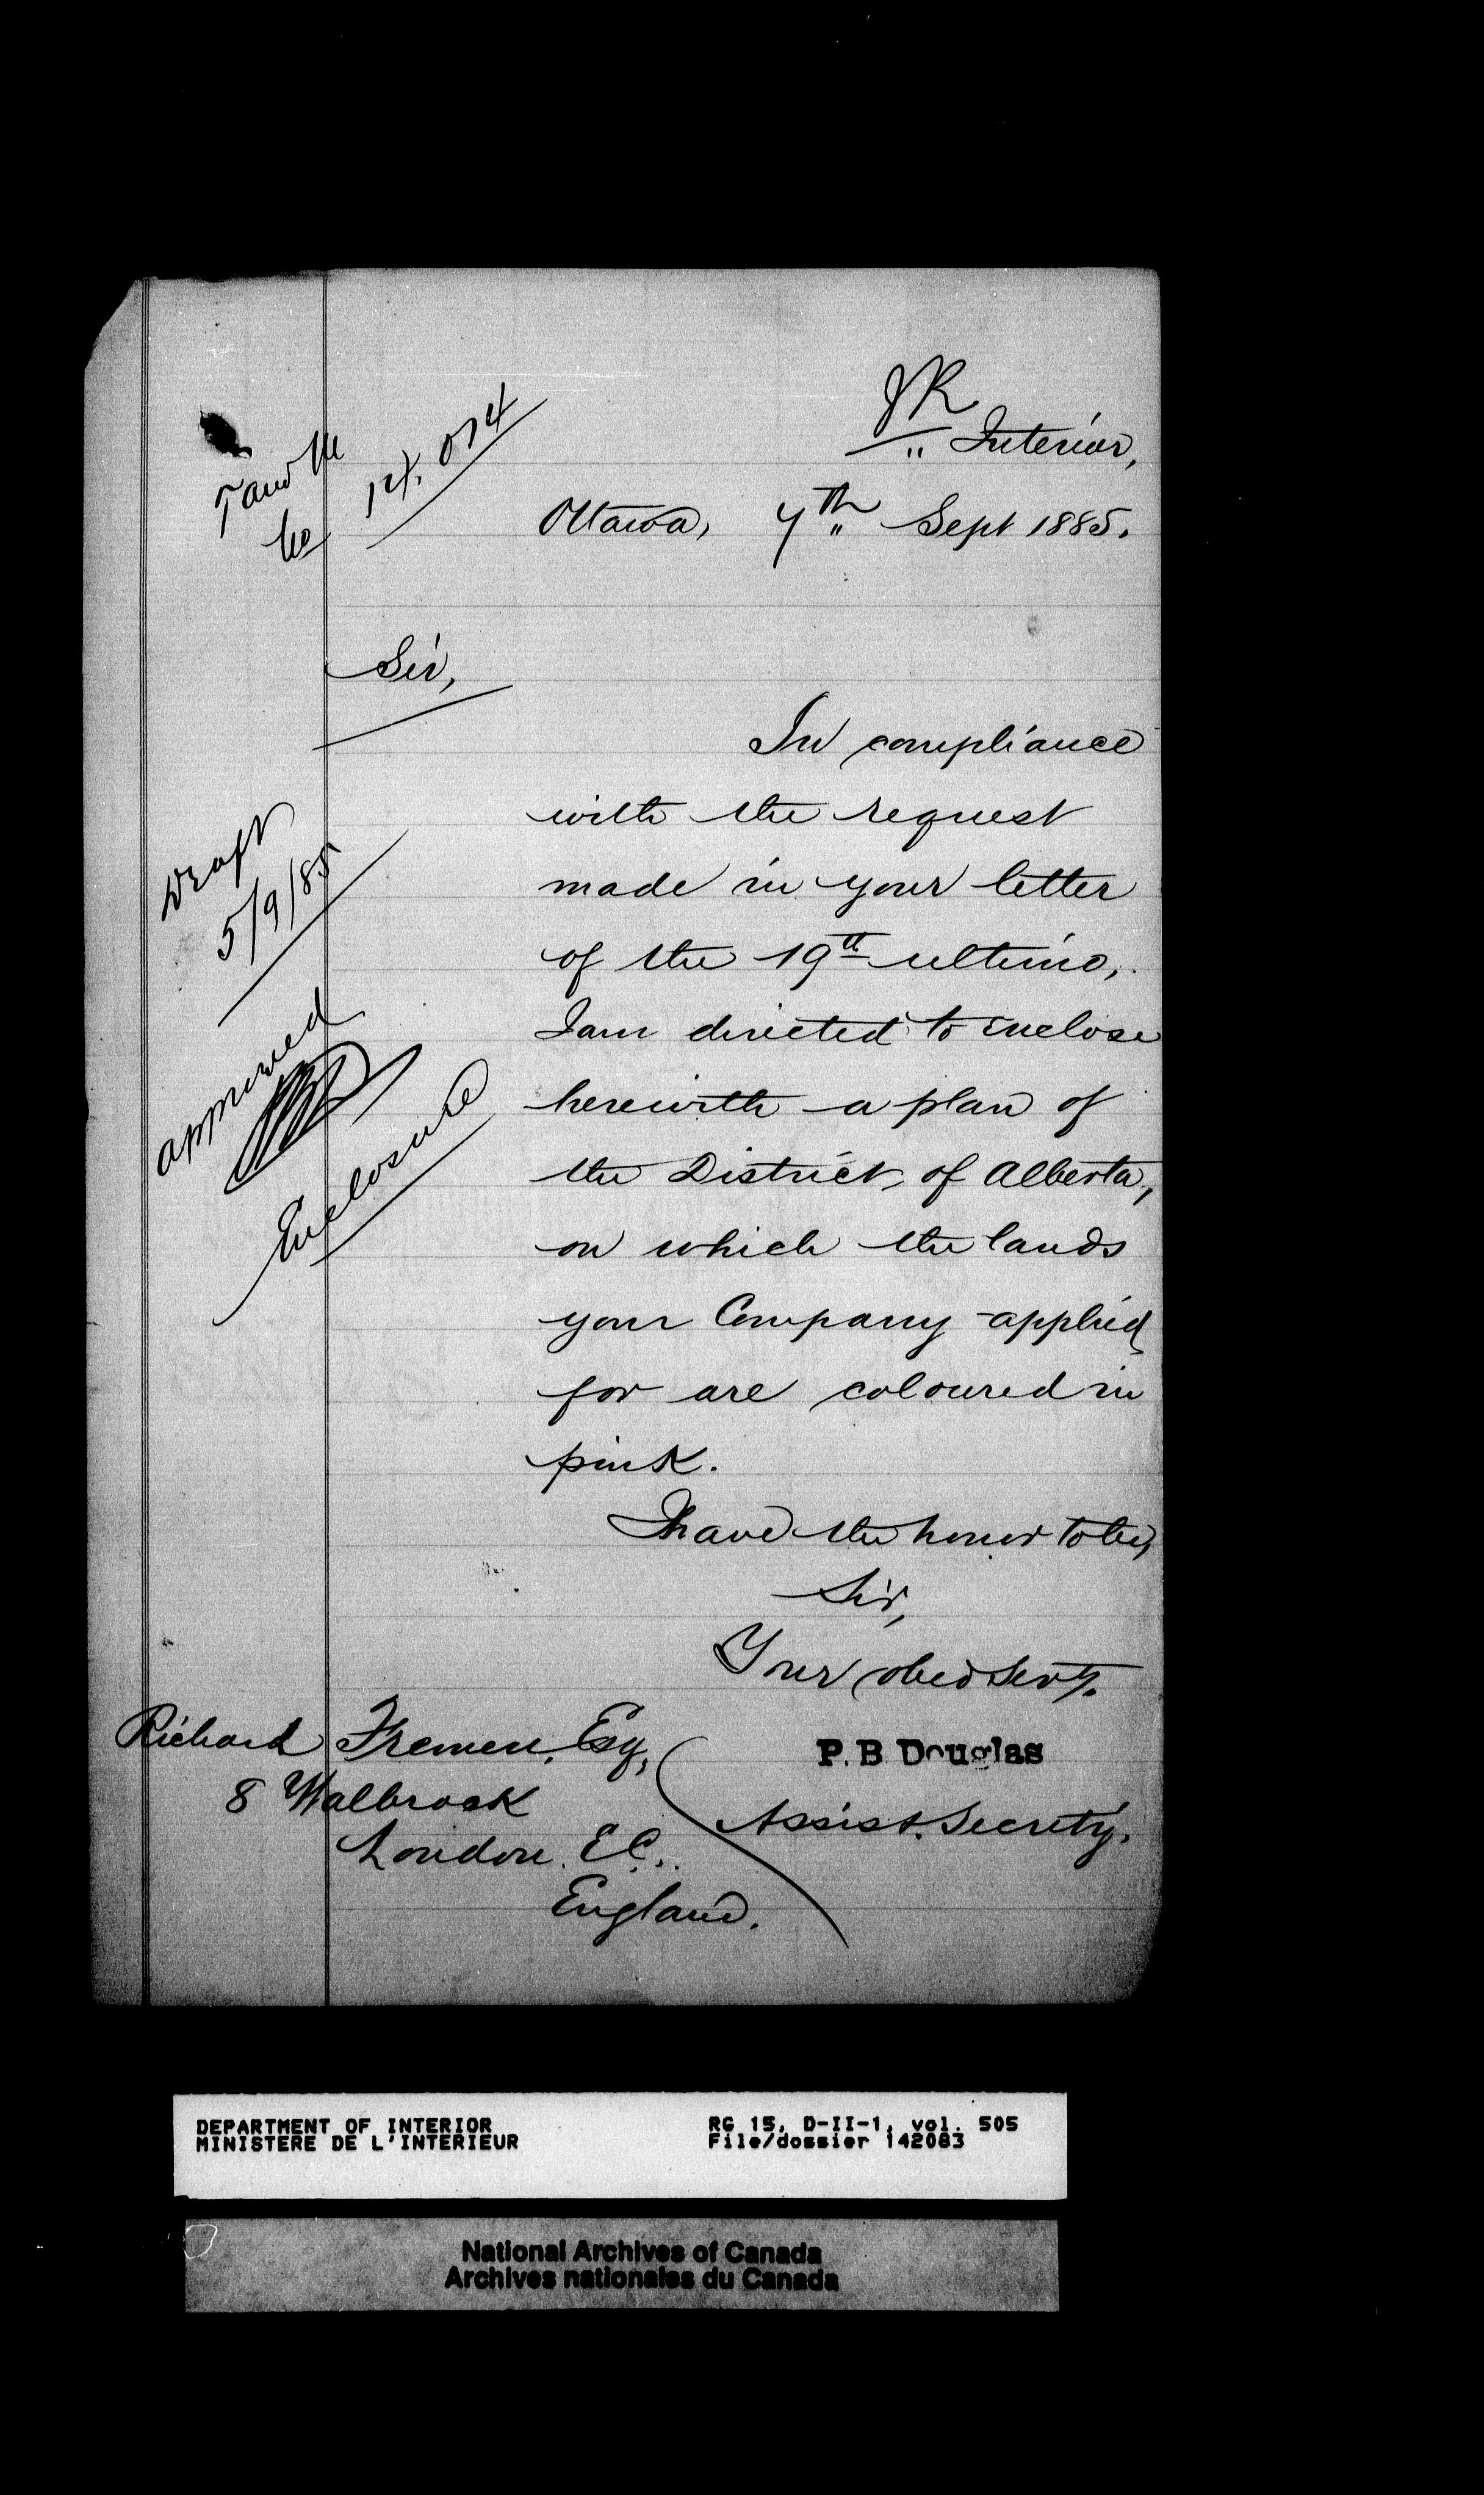 JR
" Interior,
T and M
Co
14.074
Ottawa, 7th Sept 1885.
Sir,
In compliance
with the request
made in your letter
of the 19th ultimo,
I am directed to enclose
herewith a plan of
the District, of Alberta,
on which the lands
your Company applied
for are coloured in
pink.
Draft
5/9/85
approved
Enclosure
I have the honor to be,
Sir,
Your obed servt.
P. B. Douglas
Assist. Secrety.
Richard Esq,
8 Walbrook
London. E.C.
England.
DEPARTMENT OF INTERIOR RG 15, D-II-1, vol. 505
MINISTERE DE L'INTERIEUR File/dossier 142083
National Archives of Canada
Archives nationales du Canada